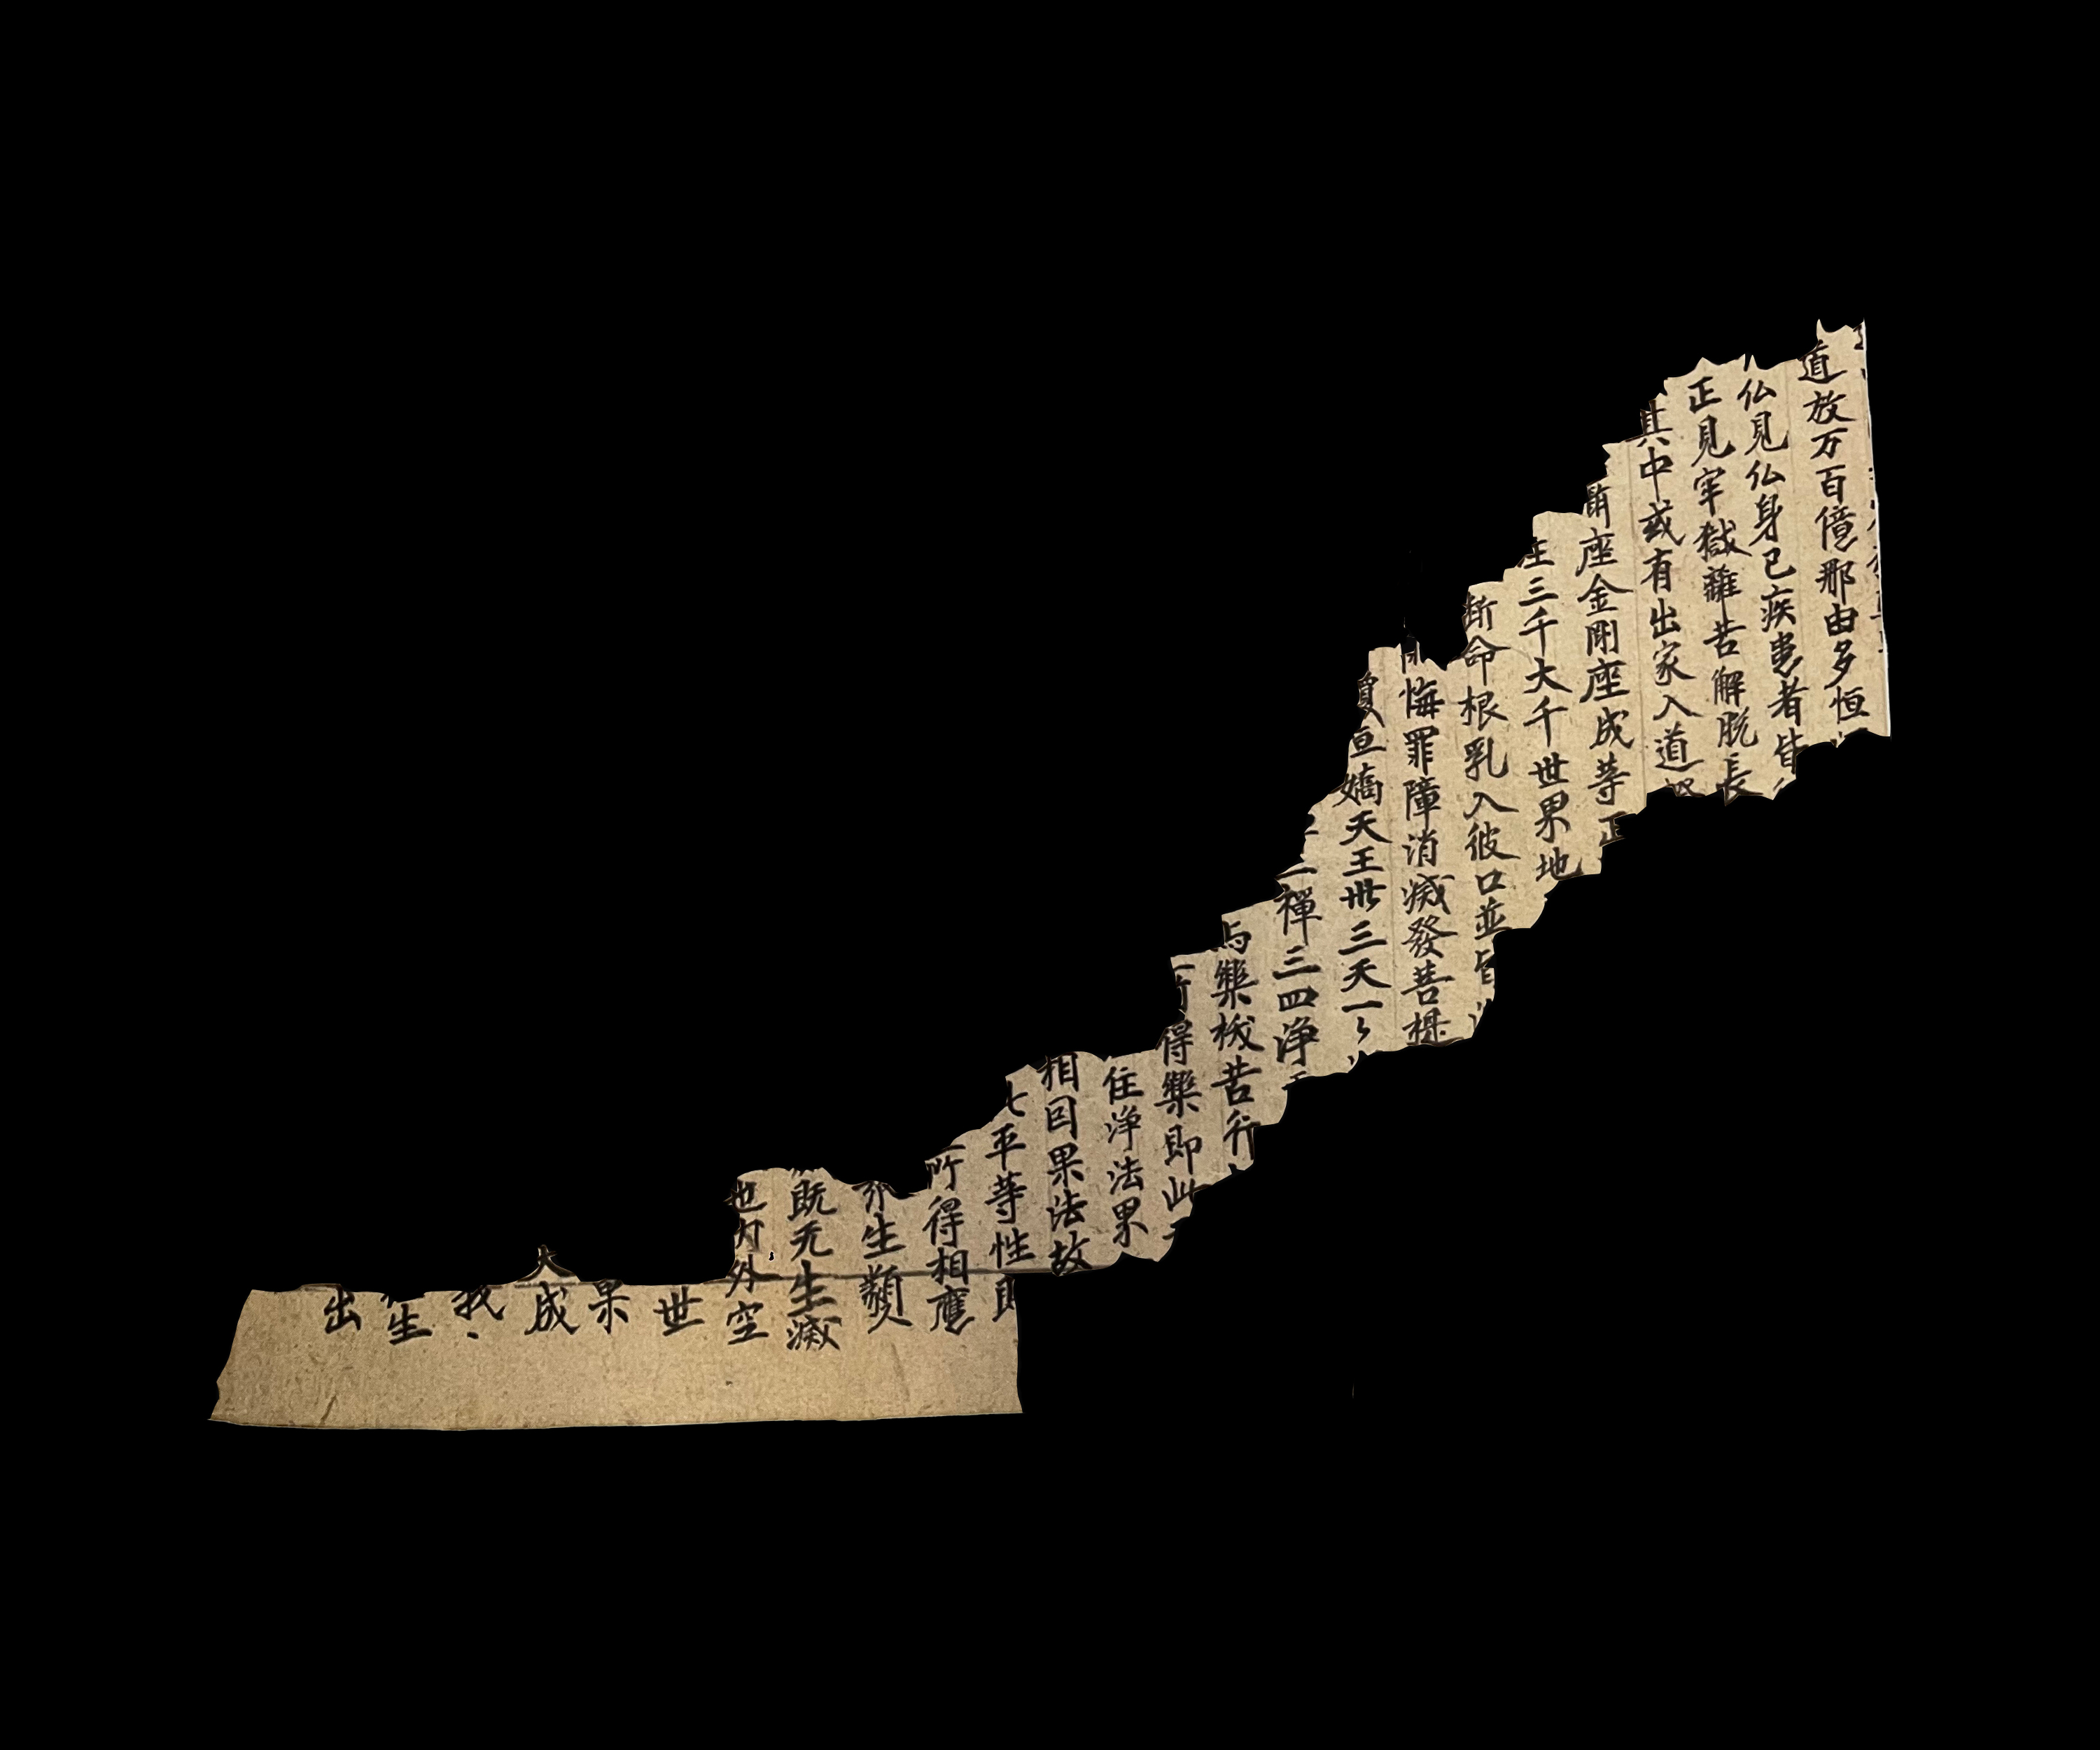 道放万百億那由多恒
仏見仏身已疾患者皆
正見牢獄離苦解脱長
其中或有出家入道
座金剛座成等正
三千大千世界地
断命根乳入彼口並皆
悔罪障消滅發菩提
亘嬌天王卅三天一〻
二禪三四浄
与樂抜苦行
所得樂即此
住浄法界
相因果法故
七平等性
所得相應
生類
既无生滅
也内外空
世
果
大成
我
生
出